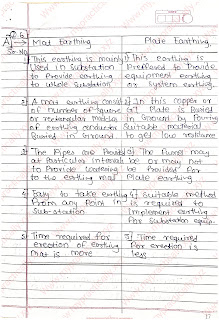 Q.6
A) Mat Earthing Plate Earthing
Sr.No.
1) This earthing is mainly 1) This earthing is
used in substation Preffered to Provide
to Provide earthing equipment earthing
to whole substation or system earthing.
2) A mat earthing consist 2) In this copper or
of number of square G.I Plate is Buried
or rectangular meshes in Ground by Pouring
of earthing conductors Suitable material
Buried in Ground to get low resistance
3) The Pipes are Provided 3) The Pipes may
at Particular interval be or may not
to Provide watering be Provided for
to the earthing mat Plate earthing
4) Easy to take earthing 4) Suitable method
From any Point in is required to
Sub-station Implement earthing
For substation equip.
5) Time required for 5) Time required
erection of earthing For erection is
mat is more less
17